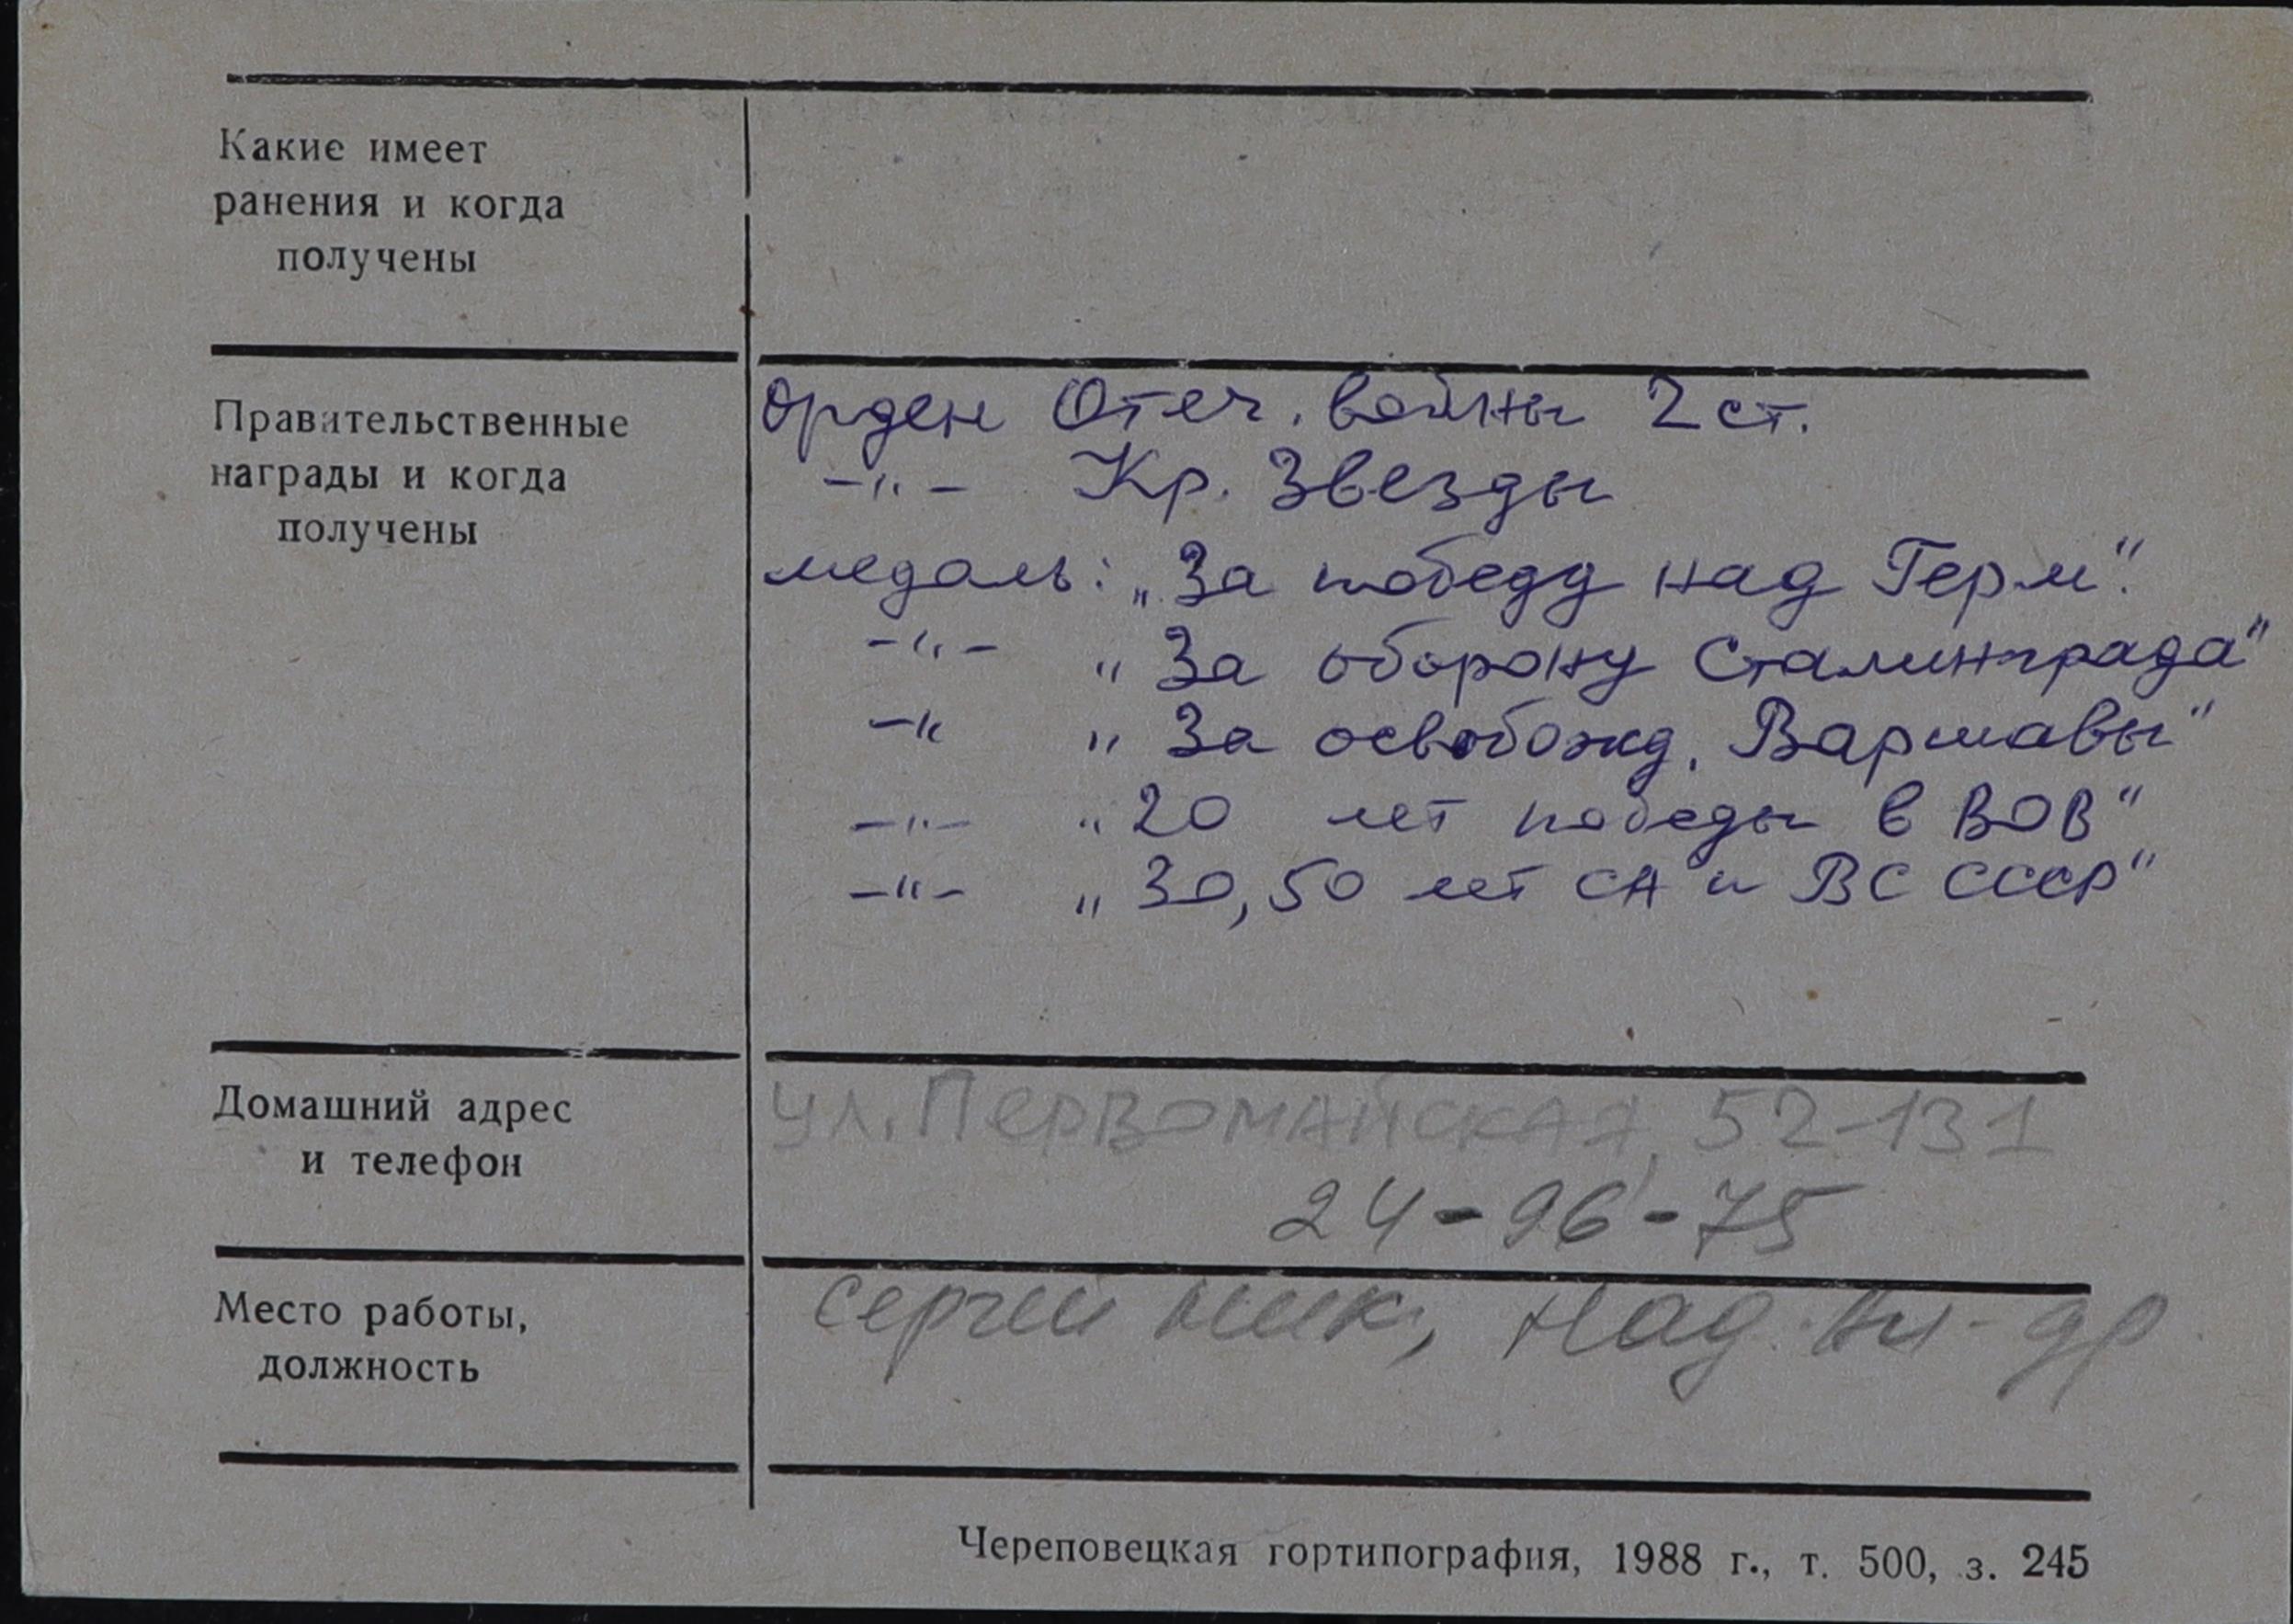 Какие имеет
ранения и когда
получены
Правительственные
награды и когда
получены
Орден Отеч. войны 2 ст.
-"- Кр. Звезды
медаль: „За победу над Герм".
-"- „За оборону Сталинграда"
-" „За освобожд. Варшавы"
-"- „20 лет победы в ВОВ"
-"- „30, 50 лет СА и ВС СССР"
Домашний адрес
и телефон
ул. Первомайская, 52-131
24-96-75
Место работы,
должность
Сергей Ник, Над.
Череповецкая гортипография, 1988 г., т. 500, з. 245